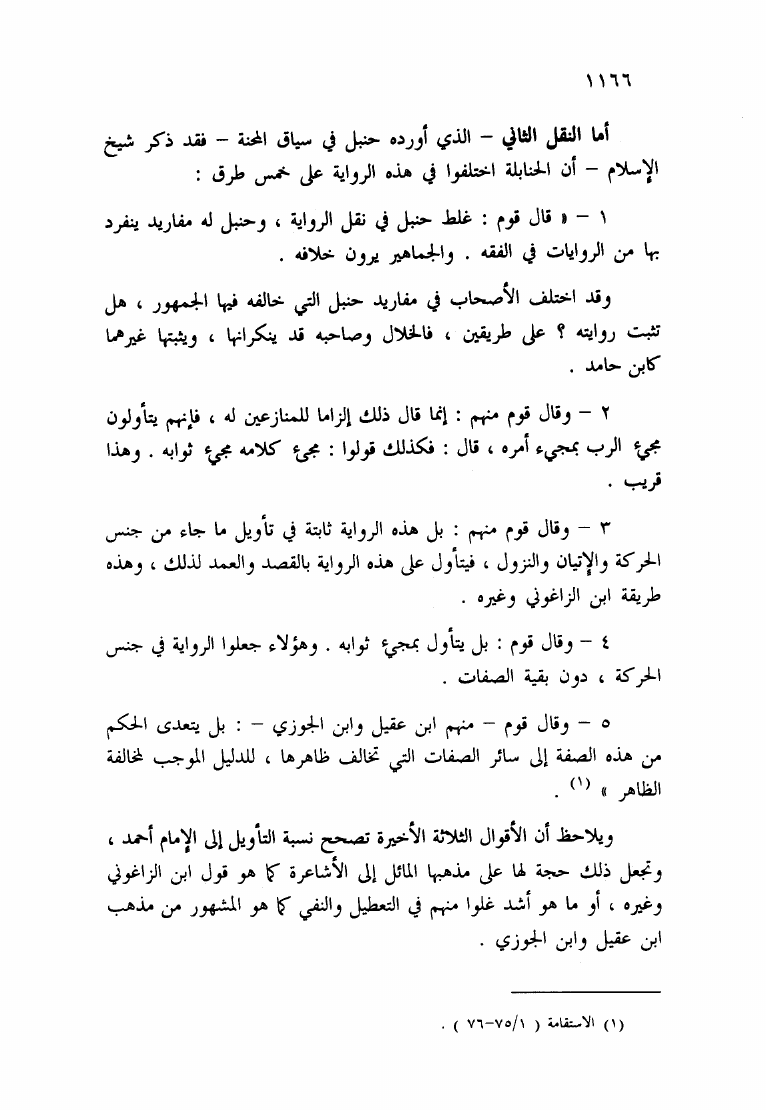 ١١٦٦
أما النقل الثاني – الذي أورده حنبل في سياق المحنة – فقد ذكر شيخ
الإسلام – أن الحنابلة اختلفوا في هذه الرواية على خمس طرق :
١ – « قال قوم : غلط حنبل في نقل الرواية ، وحنبل له مفاريد ينفرد
بها من الروايات في الفقه . والجماهير يرون خلافه .
وقد اختلف الأصحاب في مفاريد حنبل التي خالفه فيها الجمهور ، هل
تثبت روايته ؟ على طريقين ، فالخلال وصاحبه قد ينكرانها ، ويثبتها غيرهما
كابن حامد .
٢ – وقال قوم منهم : إنما قال ذلك إلزاما للمنازعين له ، فإنهم يتأولون
مجيء الرب بمجيء أمره ، قال : فكذلك قولوا : مجيء كلامه مجيء ثوابه . وهذا
قريب .
٣ – وقال قوم منهم : بل هذه الرواية ثابتة في تأويل ما جاء من جنس
الحركة والإتيان والنزول ، فيتأول على هذه الرواية بالقصد والعمد لذلك ، وهذه
طريقة ابن الزاغوني وغيره .
٤ – وقال قوم : بل يتأول بمجيء ثوابه . وهؤلاء جعلوا الرواية في جنس
الحركة ، دون بقية الصفات .
٥ – وقال قوم – منهم ابن عقيل وابن الجوزي – : بل يتعدى الحكم
من هذه الصفة إلى سائر الصفات التي تخالف ظاهرها ، للدليل الموجب لمخالفة
الظاهر » (١) .
ويلاحظ أن الأقوال الثلاثة الأخيرة تصحح نسبة التأويل إلى الإمام أحمد ،
وتجعل ذلك حجة لها على مذهبها المائل إلى الأشاعرة كما هو قول ابن الزاغوني
وغيره ، أو ما هو أشد غلوا منهم في التعطيل والنفي كما هو المشهور من مذهب
ابن عقيل وابن الجوزي .
(١) الاستقامة ( ١/٧٥–٧٦ ) .